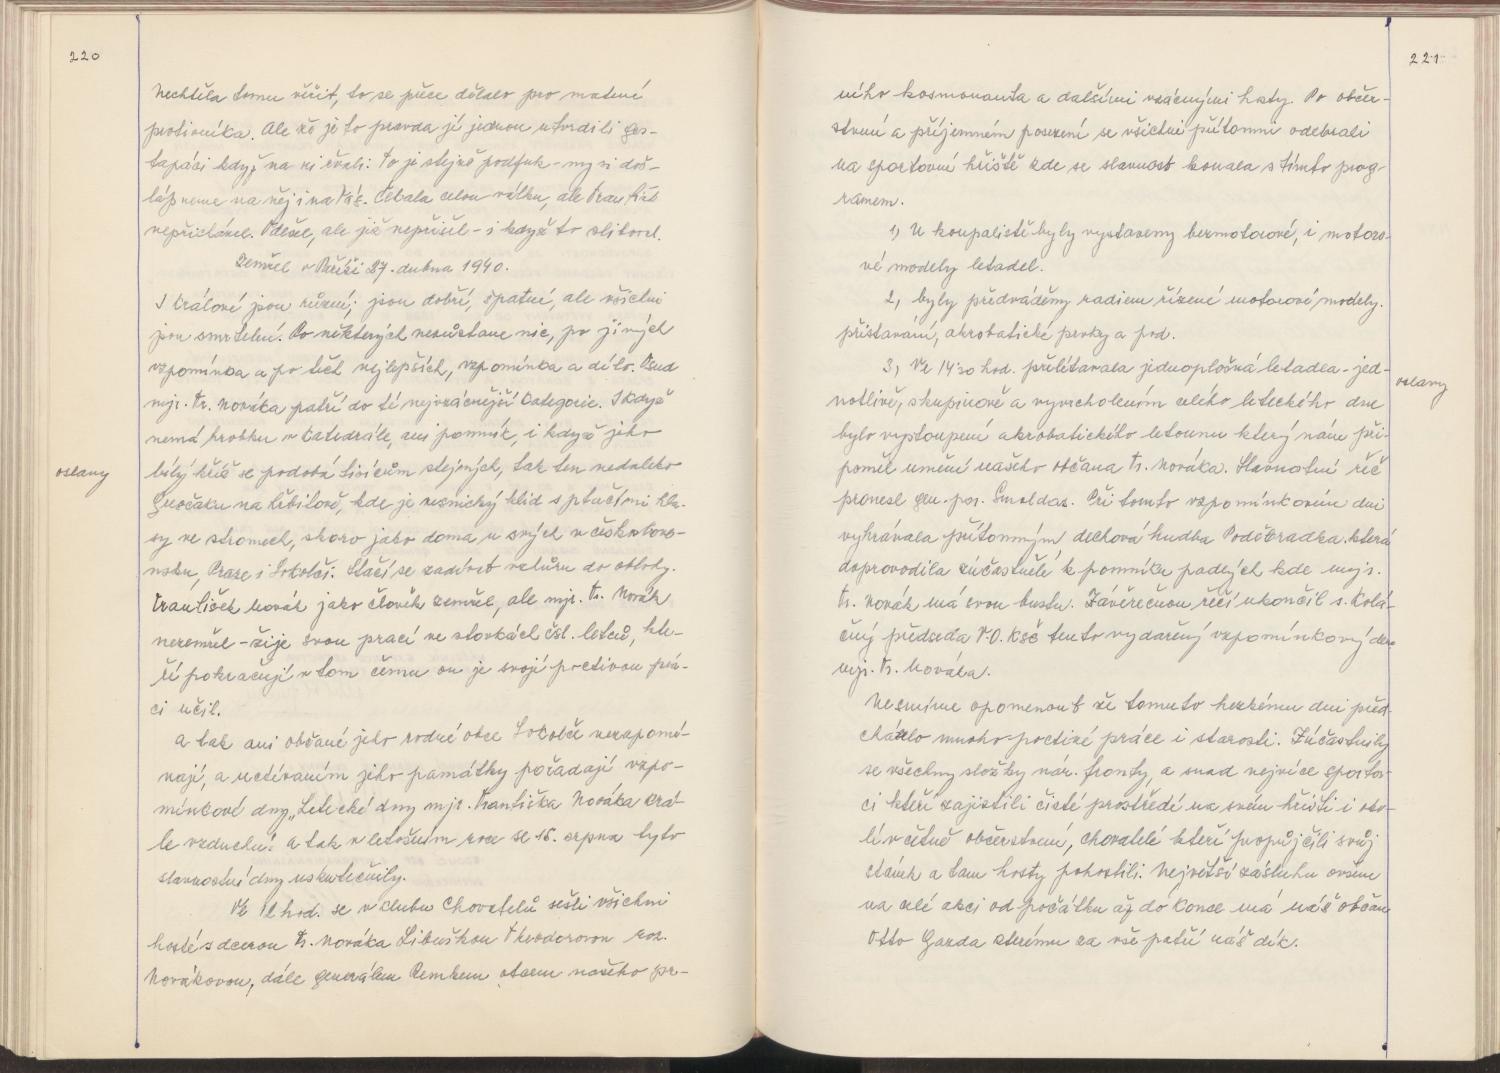 220
Nechtěla tomu věřit, to se přece dělalo pro matení
protivníka. Ale že je to pravda jí jednou utvrdili ges-
tapáci když na ni řvali: To je stejně podfuk - my si doš-
lápneme na něj i na Vás. Čekala celou válku, ale František
nepřicházel. Věděl, ale již nepřišel - i když to sliboval.
Zemřel v Paříži 27. dubna 1940.
I Králové jsou různí; jsou dobří, špatní, ale všichni
jsou smrtelní. Po některých nezůstane nic, po jiných
vzpomínka a po těch nejlepších, vzpomínka a dílo. Osud
mjr. Fr. Nováka patří do té nejvzácnější kategorie. I když
nemá hrobku v katedrále, ani pomník, i když jeho
oslavy
bílý kříž se podobá tisícům stejných, tak ten nedaleko
na hřbitově, kde je vesnický klid s ptačími hla-
sy ve stromech, skoro jako doma u svých v Českosloven-
sku, Praze i Sokolči. Stačí se zadívat vzhůru do oblohy.
František Novák jako člověk zemřel, ale mjr. Fr. Novák
nezemřel - žije svou prací ve stovkách čsl. letců, kte-
ří pokračují v tom čemu on je svojí poctivou prá-
ci učil.
A tak ani občané jeho rodné obce Sokolče nezapomí-
nají, a uctíváním jeho památky pořádají vzpo-
mínkové dny „Letecké dny mjr. Františka Nováka krá-
le vzduchu." a tak v letošním roce se 15. srpna tyto
slavnostní dny uskutečnily.
Ve 12 hod. se v clubu Chovatelů sešli všichni
hosté s dcerou Fr. Nováka Libuškou Theodorovou roz.
Novákovou, dále generálem Remkem otcem našeho pr-
221
vního kosmonauta a dalšími vzácnými hosty. Po občer-
stvení a příjemném posezení se všichni přítomní odebrali
na sportovní hřiště kde se slavnost konala s tímto prog-
ramem.
1) U koupaliště byly vystaveny bezmotorové, i motoro-
vé modely letadel.
2, byly předváděny radiem řízené motorové modely.
přistávání, akrobatické prvky a pod.
3, Ve 14'30 hod. přilétávala jednoplošná letadla - jed-
oslavy
notlivě, skupinově a vyvrcholením celého leteckého dne
bylo vystoupení akrobatického letounu který nám při-
poměl umění našeho občana Fr. Nováka. Slavnostní řeč
pronesl gen. por. Smoldas. Při tomto vzpomínkovém dni
vyhrávala přítomným dechová hudba Podčbradka. která
doprovodila zúčastnělé k pomníku padlých kde majr.
Fr. Novák má svou bustu. Závěrečnou řečí ukončil s. Kolá-
čný předseda V.O. KSČ tento vydařený vzpomínkový den
mjr. Fr. Nováka.
Nesmíme opomenout že tomuto hezkému dni před-
cházelo mnoho poctivé práce i starosti. Zúčastnily
se všechny složky nár. fronty, a snad nejvíce sporto-
ci kteří zajistili čisté prostředí na svém hřišti i oko-
lí včetně občerstvení, chovatelé kteří propůjčili svůj
stánek a tam hosty pohostili. Největší zásluhu ovšem
na celé akci od počátku až do konce má náš občan
Otto Garda kterému za vše patří náš dík.